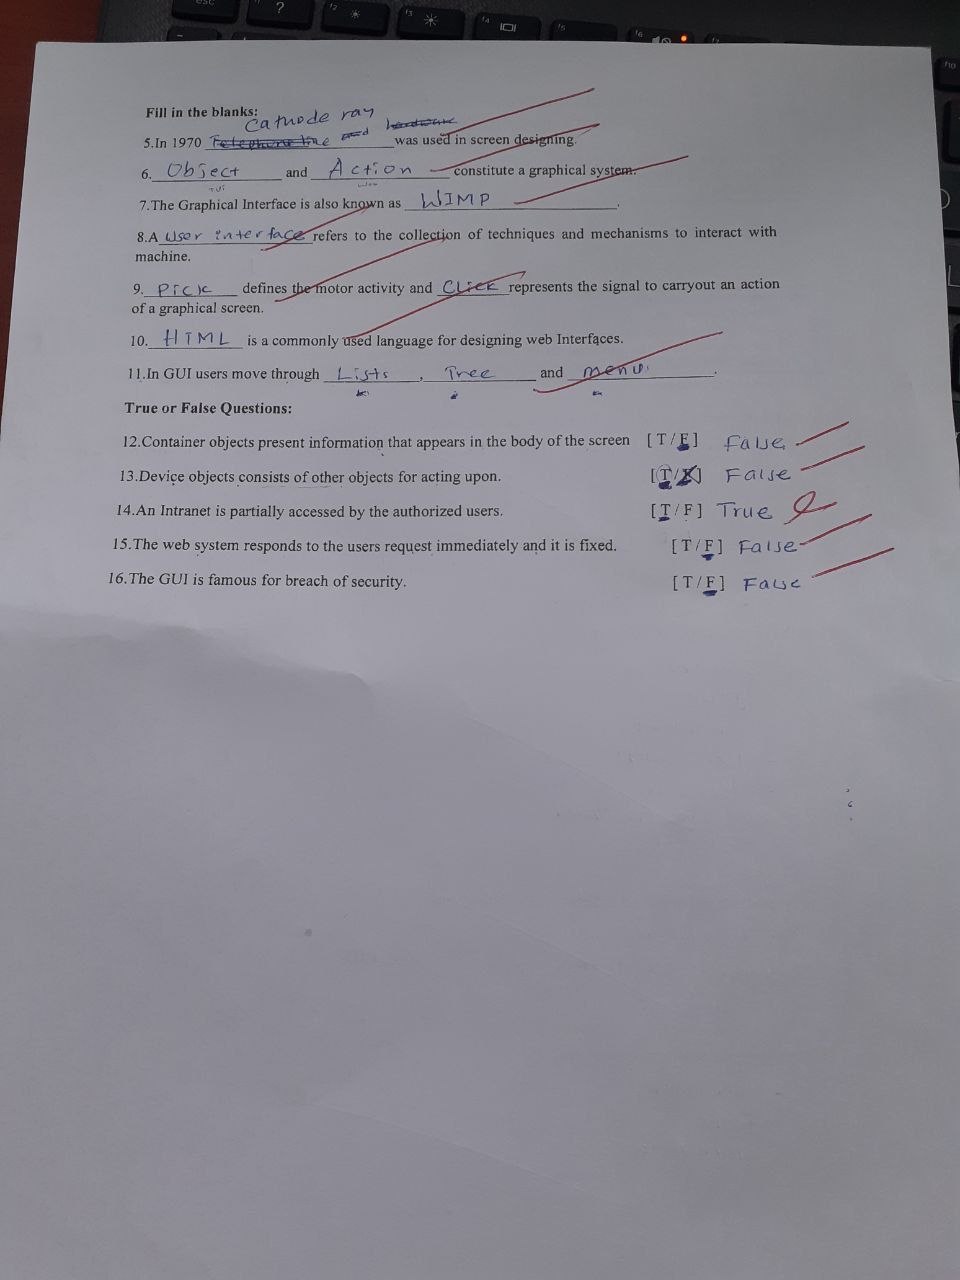 esc ? f2 f3 f4 f5 f6
Fill in the blanks:
Cathode ray
5.In 1970 Telephone line and hardware was used in screen designing.
6. Object and Action constitute a graphical system.
7.The Graphical Interface is also known as WIMP.
8.A User interface refers to the collection of techniques and mechanisms to interact with
machine.
9. Pick defines the motor activity and Click represents the signal to carryout an action
of a graphical screen.
10. HTML is a commonly used language for designing web Interfaces.
11.In GUI users move through Lists, Tree and menu.
True or False Questions:
12.Container objects present information that appears in the body of the screen [T/F] False
13.Device objects consists of other objects for acting upon. [T/F] False
14.An Intranet is partially accessed by the authorized users. [T/F] True
15.The web system responds to the users request immediately and it is fixed. [T/F] False
16.The GUI is famous for breach of security. [T/F] False